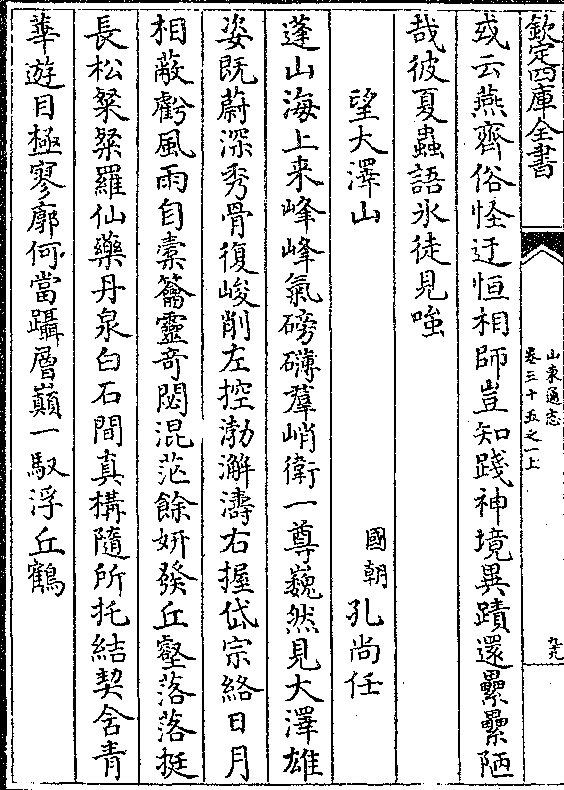 欽定四庫全書
山東通志
卷三十五之一上
九九
或云燕齊俗怪迂恒相師豈知踐神境異蹟還纍纍陋
哉彼夏蟲語氷徒見嗤
望大澤山
國朝孔尚任
蓬山海上来峰峰氣磅礴羣峭衛一尊巍然見大澤雄
姿既蔚深秀骨復峻削左控渤澥濤右握岱宗絡日月
相蔽虧風雨自橐籥靈奇閟混茫餘妍發丘壑落落挺
長松粲粲羅仙藥丹泉白石間真構隨所托結契舍青
華遊目極寥廓何當躡層巔一馭浮丘鶴